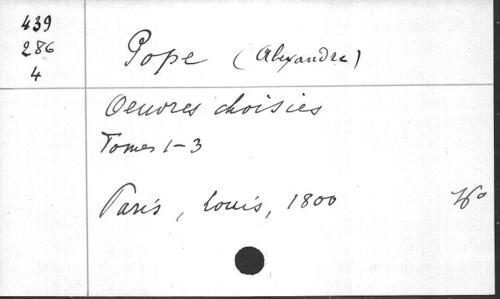 439
286
4
Pope (Alexandre)
Oeuvres choisies
Tomes 1-3
Paris, Louis, 1800